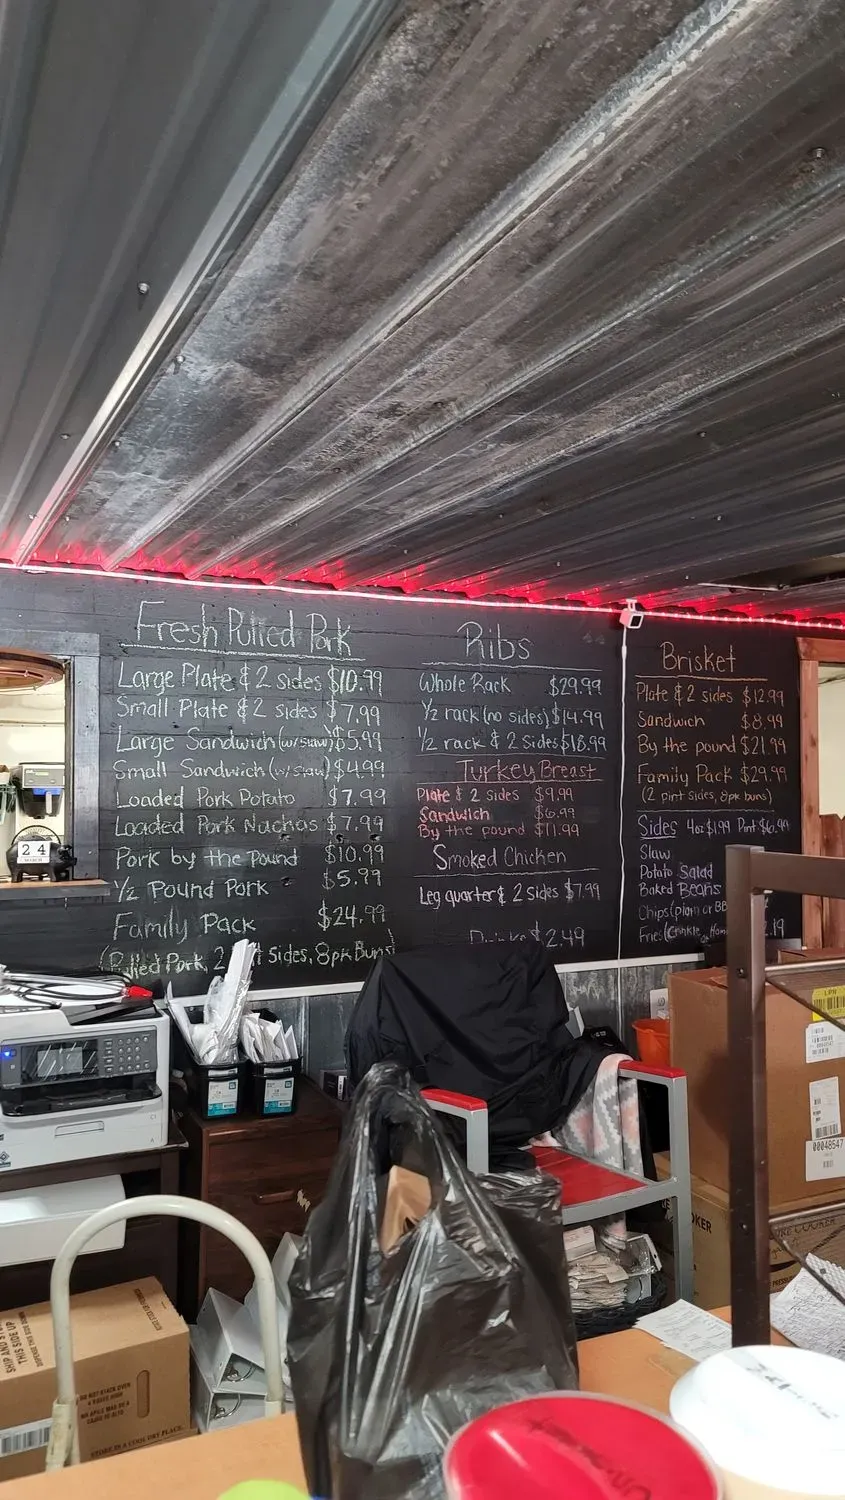 Fresh Pulled Pork
Large Plate & 2 sides $10.99
Small Plate & 2 sides $7.99
Large Sandwich (w/slaw) $5.99
Small Sandwich (w/slaw) $4.99
Loaded Pork Potato $7.99
Loaded Pork Nachos $7.99
Pork by the Pound $10.99
1/2 Pound Pork $5.99
Family Pack $24.99
(Pulled Pork, 2 Sides, 8pk Buns)
Ribs
Whole Rack $29.99
1/2 rack (no sides) $14.99
1/2 rack & 2 Sides $18.99
Turkey Breast
Plate & 2 sides $9.99
Sandwich $6.99
By the pound $11.99
Smoked Chicken
Leg quarter & 2 sides $7.99
Drinks $2.49
Brisket
Plate & 2 sides $12.99
Sandwich $8.99
By the pound $21.99
Family Pack $29.99
(2 pint sides, 8pk buns)
Sides 4oz $1.99 Pint $6.99
Slaw
Potato Salad
Baked Beans
Chips (plain or BB
Fries (Crinkle or Hom 2.19
24
LPN
00048547
OKER
URE COOKER
THIS SIDE UP
DO NOT STACK OVER
STORE IN A COOL DRY PLACE